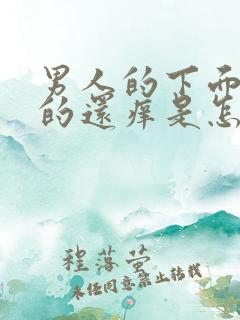 男人的下面
的還痒是怎
程落萤
未任同意禁止转载